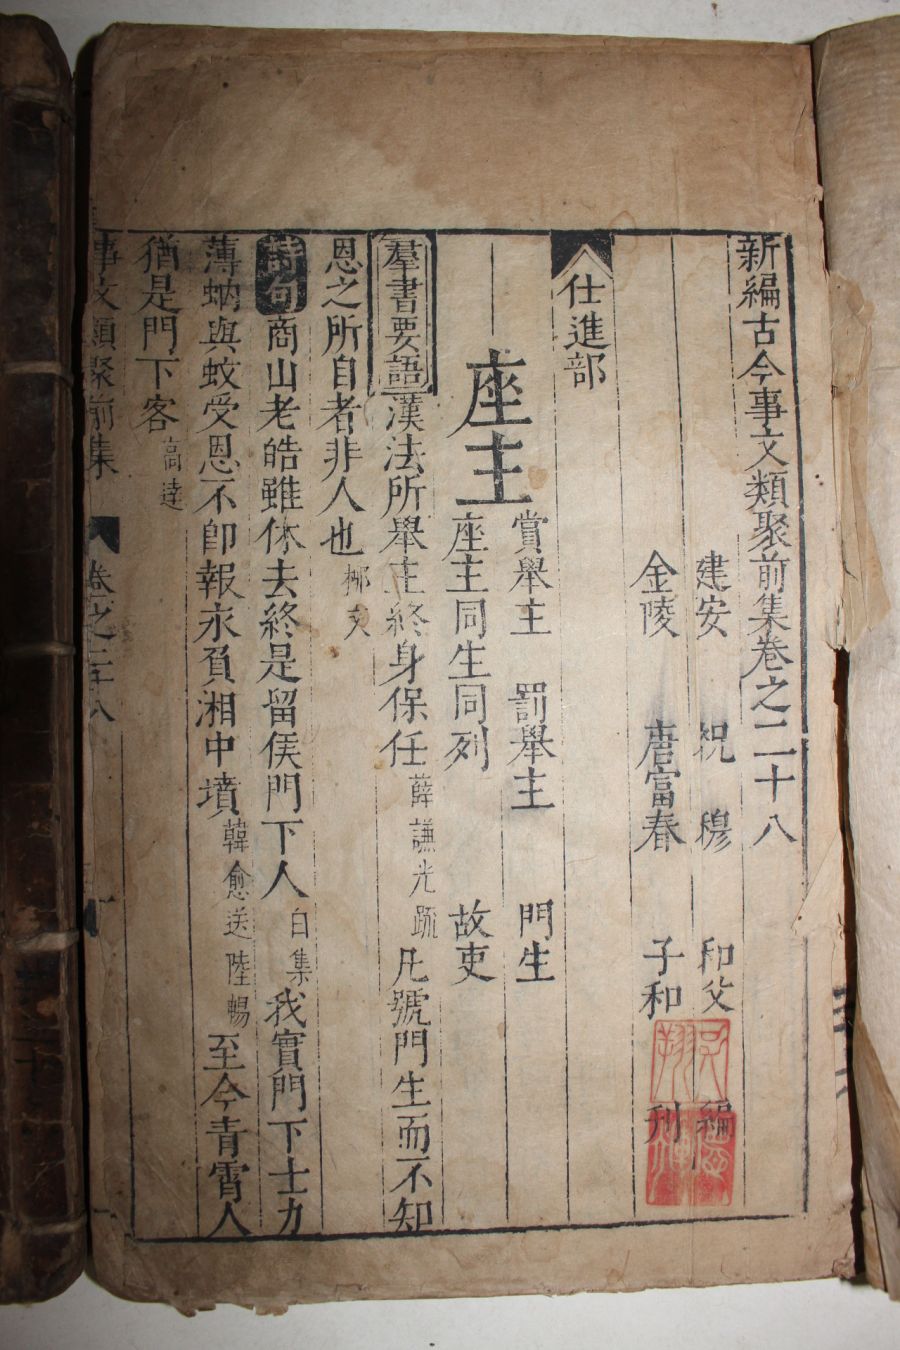 新編古今事文類聚前集卷之二十八
建安 祝 穆 和父 編
金陵 唐富春 子和 刋
仕進部
座主
賞舉主 罰舉主 門生
座主同生同列 故吏
羣書要語 漢法所舉主終身保任 薛謙光疏 凡號門生而不知
恩之所自者非人也 柳文
詩句 商山老皓雖休去終是留侯門下人 白集 我實門下士力
薄蚋與蚊受恩不卽報永負湘中墳 韓愈送陸暢 至今青霄人
猶是門下客 高逵
事文類聚前集 卷之二十八